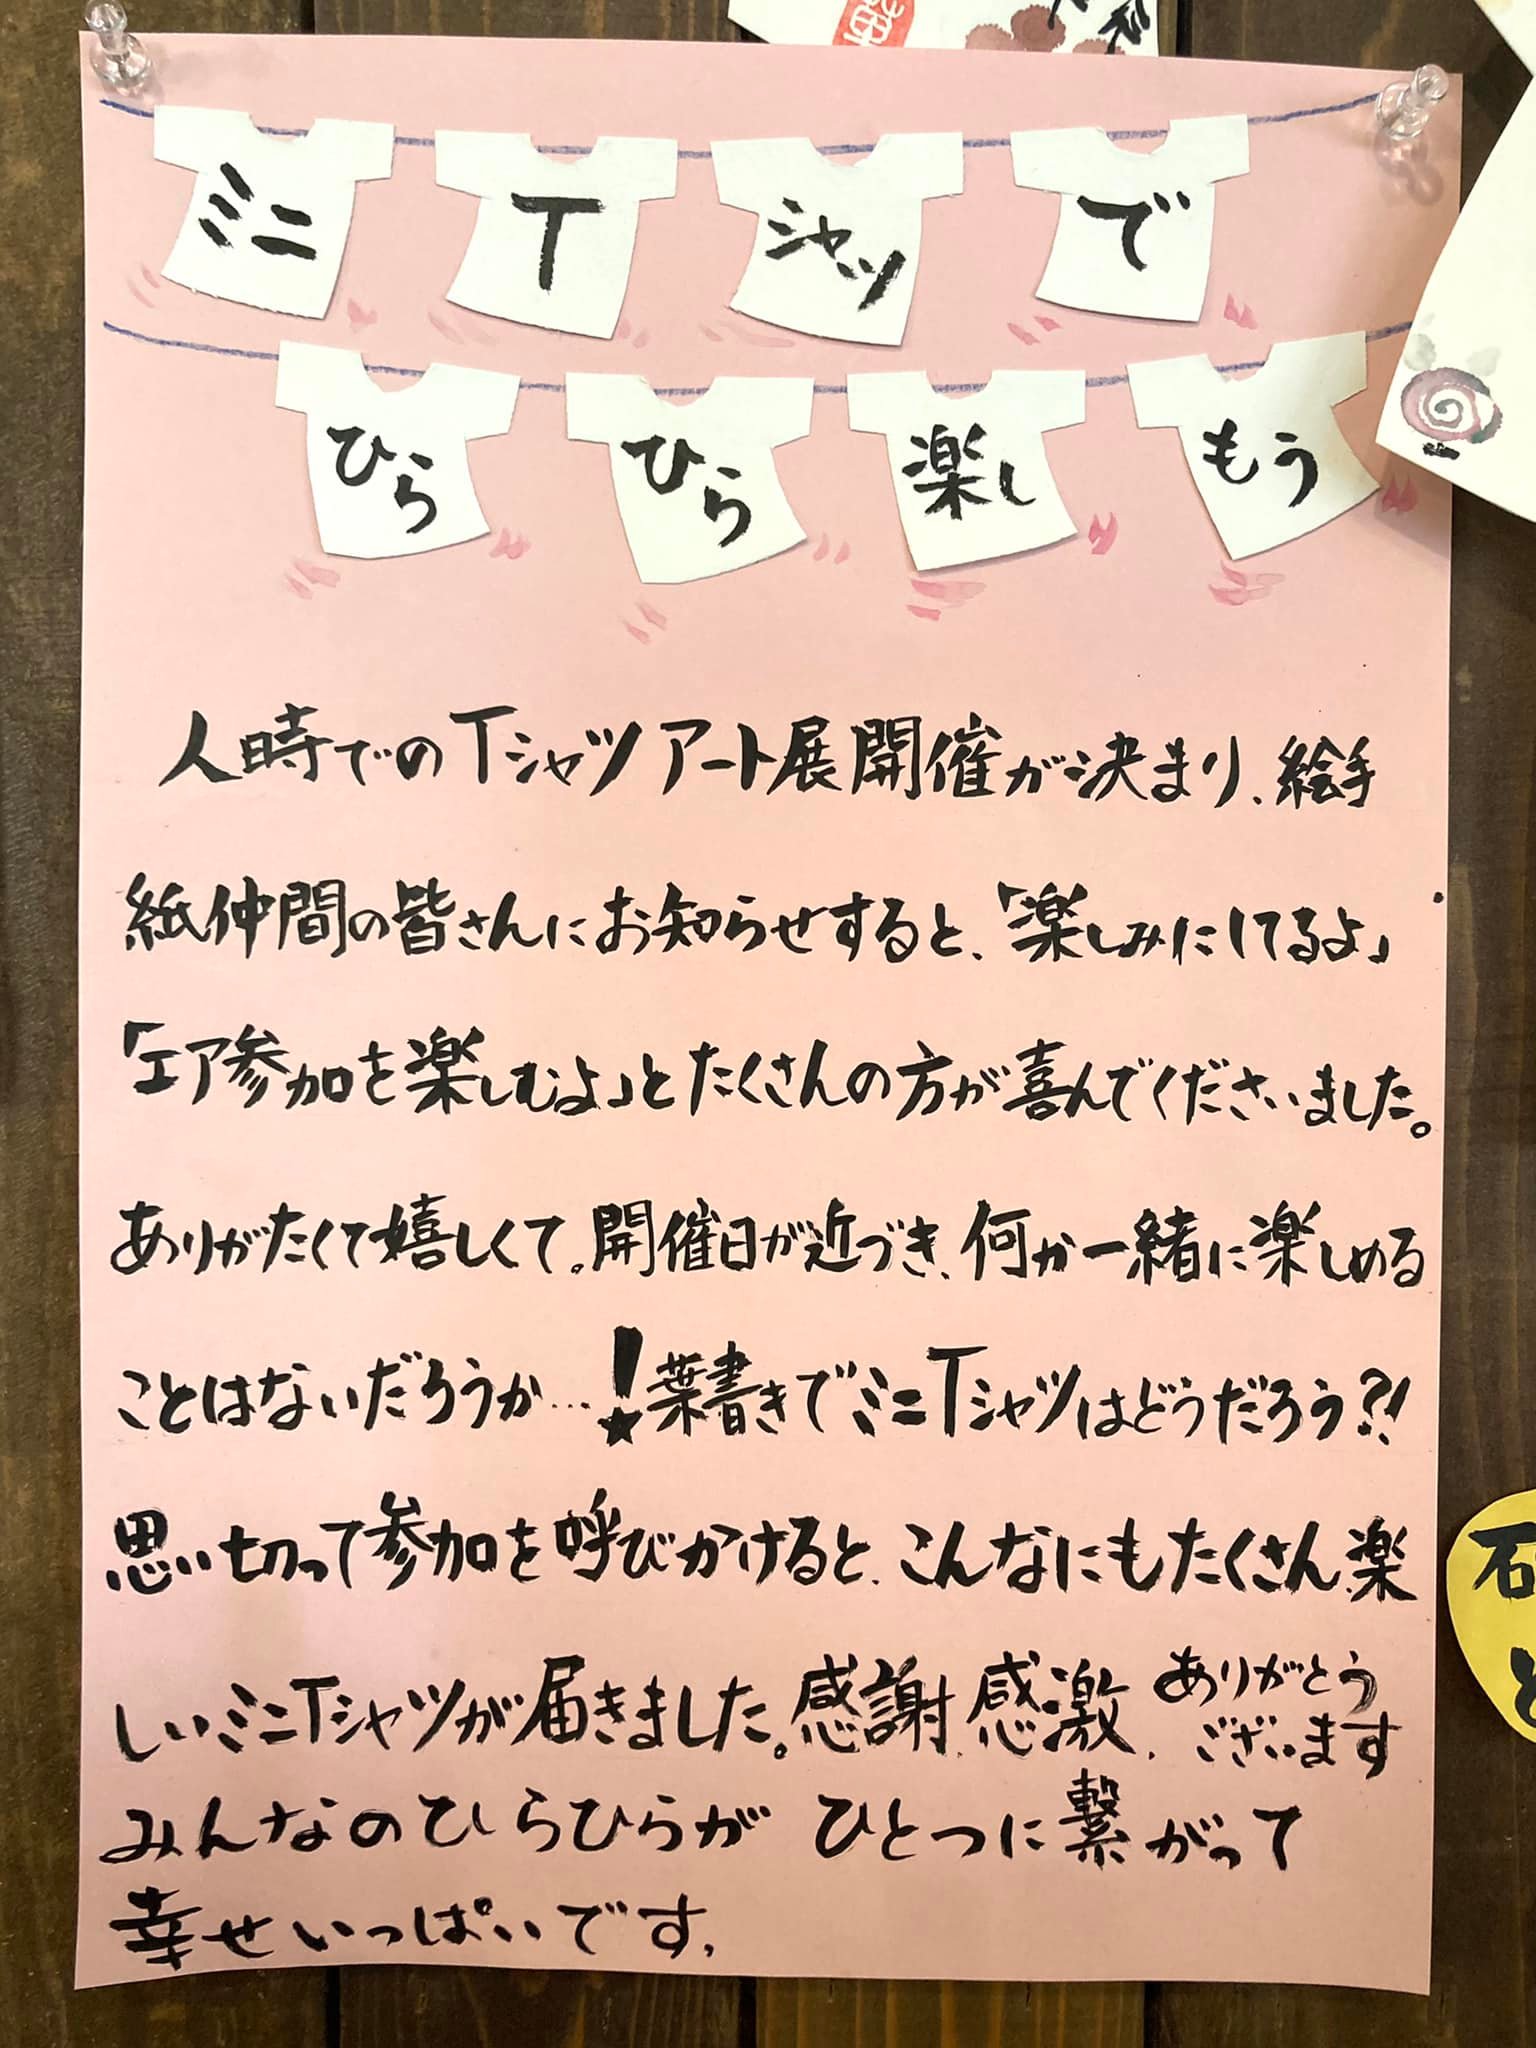 ミニTシャツで
ひらひら楽しもう
人時でのTシャツアート展開催が決まり、絵手
紙仲間の皆さんにお知らせすると、「楽しみにしてるよ」
「エア参加を楽しむよ」とたくさんの方が喜んでくださいました。
ありがたくて嬉しくて。開催日が近づき、何か一緒に楽しめる
ことはないだろうか…!葉書きでミニTシャツはどうだろう?!
思い切って参加を呼びかけると、こんなにもたくさん、楽
しいミニTシャツが届きました。感謝、感激、ありがとう
ございます
みんなのひらひらが ひとつに繋がって
幸せいっぱいです。
石
と